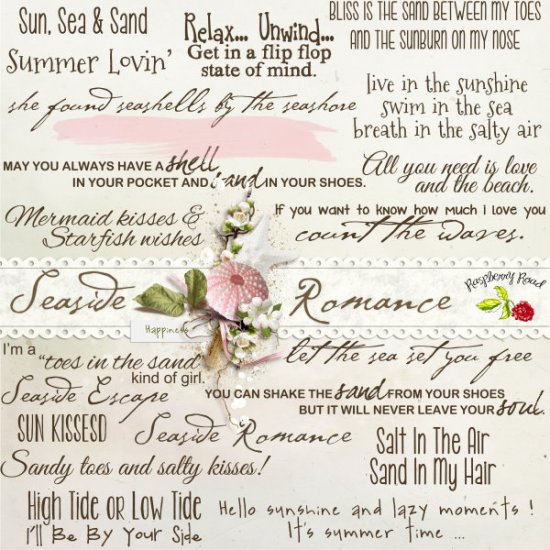 Sun, Sea & Sand
Summer Lovin'
Relax... Unwind...
Get in a flip flop
state of mind.
BLISS IS THE SAND BETWEEN MY TOES
AND THE SUNBURN ON MY NOSE
she found seashells by the seashore
live in the sunshine
swim in the sea
breath in the salty air
MAY YOU ALWAYS HAVE A shell
IN YOUR POCKET AND sand IN YOUR SHOES.
All you need is love
and the beach.
Mermaid kisses &
Starfish wishes
If you want to know how much i love you
count the waves.
Seaside Romance
Raspberry Road
Happiness
I'm a "toes in the sand
kind of girl.
let the sea set you free
Seaside Escape
YOU CAN SHAKE THE sand FROM YOUR SHOES
BUT IT WILL NEVER LEAVE YOUR soul.
SUN KISSESD
Seaside Romance
Salt In The Air
Sand In My Hair
Sandy toes and salty kisses!
High Tide or Low Tide
I'll Be By Your Side
Hello sunshine and lazy moments !
It's summer time ...